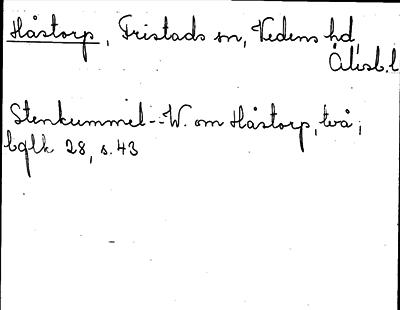 Håstorp, Fristads sn, Vedens hd,
Älvsb. l
Stenkummel - W. om Håstorp, två;
bglk 28, s. 43